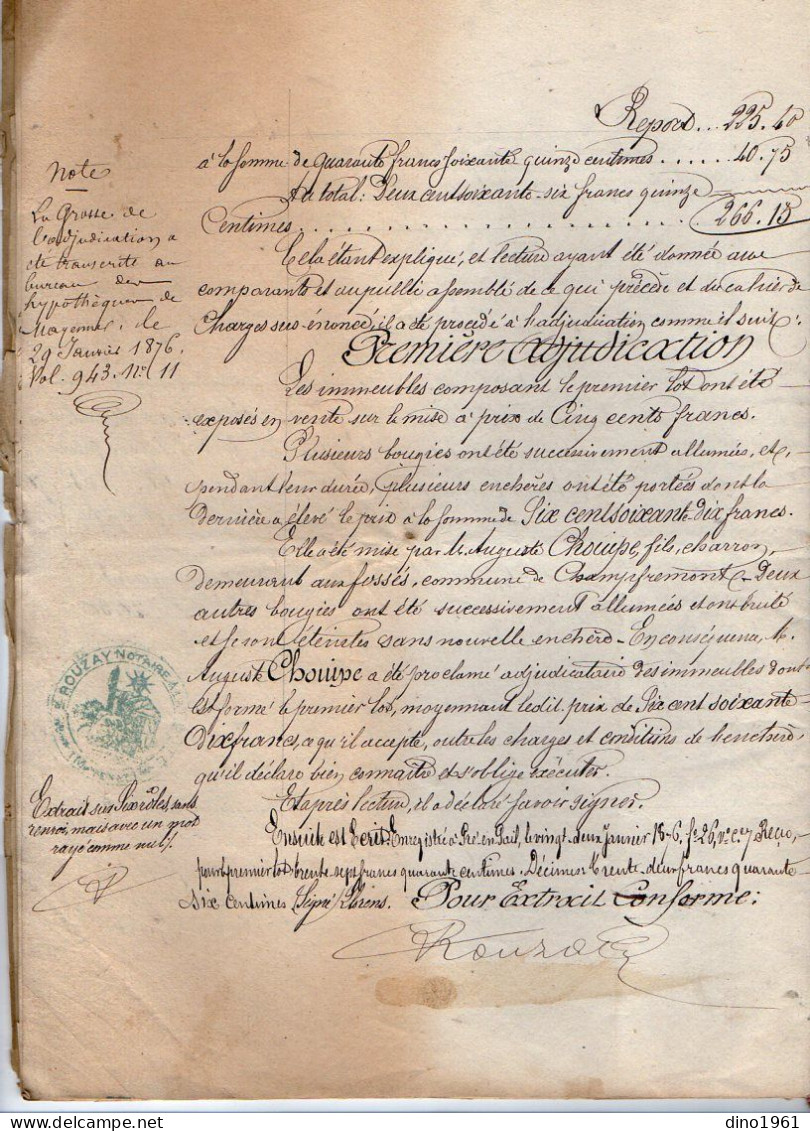 Report... 225.40
à la somme de quarante francs soixante quinze centimes ..... 40.75
Au total: Deux cent soixante-six francs quinze
Centimes ........................ 266.15
Cela étant expliqué, et lecture ayant été donnée aux
comparants et au public assemblé de ce qui précède et du cahier de
Charges sus-énoncé, il a été procédé à l'adjudication comme il suit:
Première adjudication
Les immeubles composant le premier lot ont été
exposés en vente sur la mise à prix de Cinq cents francs.
Plusieurs bougies ont été successivement allumées, et,
pendant leur durée, plusieurs enchères ont été portées dont la
dernière a élevé le prix à la somme de Six cent soixante-dix francs.
Elle a été mise par M. Auguste Chouipe, fils, charron,
demeurant aux fossés, commune de Champfremont - Deux
autres bougies ont été successivement allumées et ont brulé
et se sont éteintes sans nouvelle enchère - En conséquence, M.
Auguste Chouipe a été proclamé adjudicataire des immeubles dont
est formé le premier lot, moyennant ledit prix de Six cent soixante-
Dix francs, ce qu'il accepte, outre les charges et conditions de l'enchère
qu'il déclare bien connaître et s'oblige exécuter.
Et après lecture, il a déclaré savoir signer.
Ensuite est écrit: Enregistré à Pré en Pail, le vingt-deux Janvier 18-6, fo 26, Vo C. 7 Reçu,
pour premier lot trente sept francs quarante centimes. Décimes trente-deux francs quarante-
six centimes (Signé)
Pour Extrait Conforme:
Rouzay
Note
La Grosse de
l'adjudication a
été transcrite au
bureau des
hypothèques de
Mayenne, le
29 Janvier 1876.
Vol. 943. No 11
ROUZAY NOTAIRE
Extrait sur Six rôles sans
renvoi, mais avec un mot
rayé comme nul.
dino1961